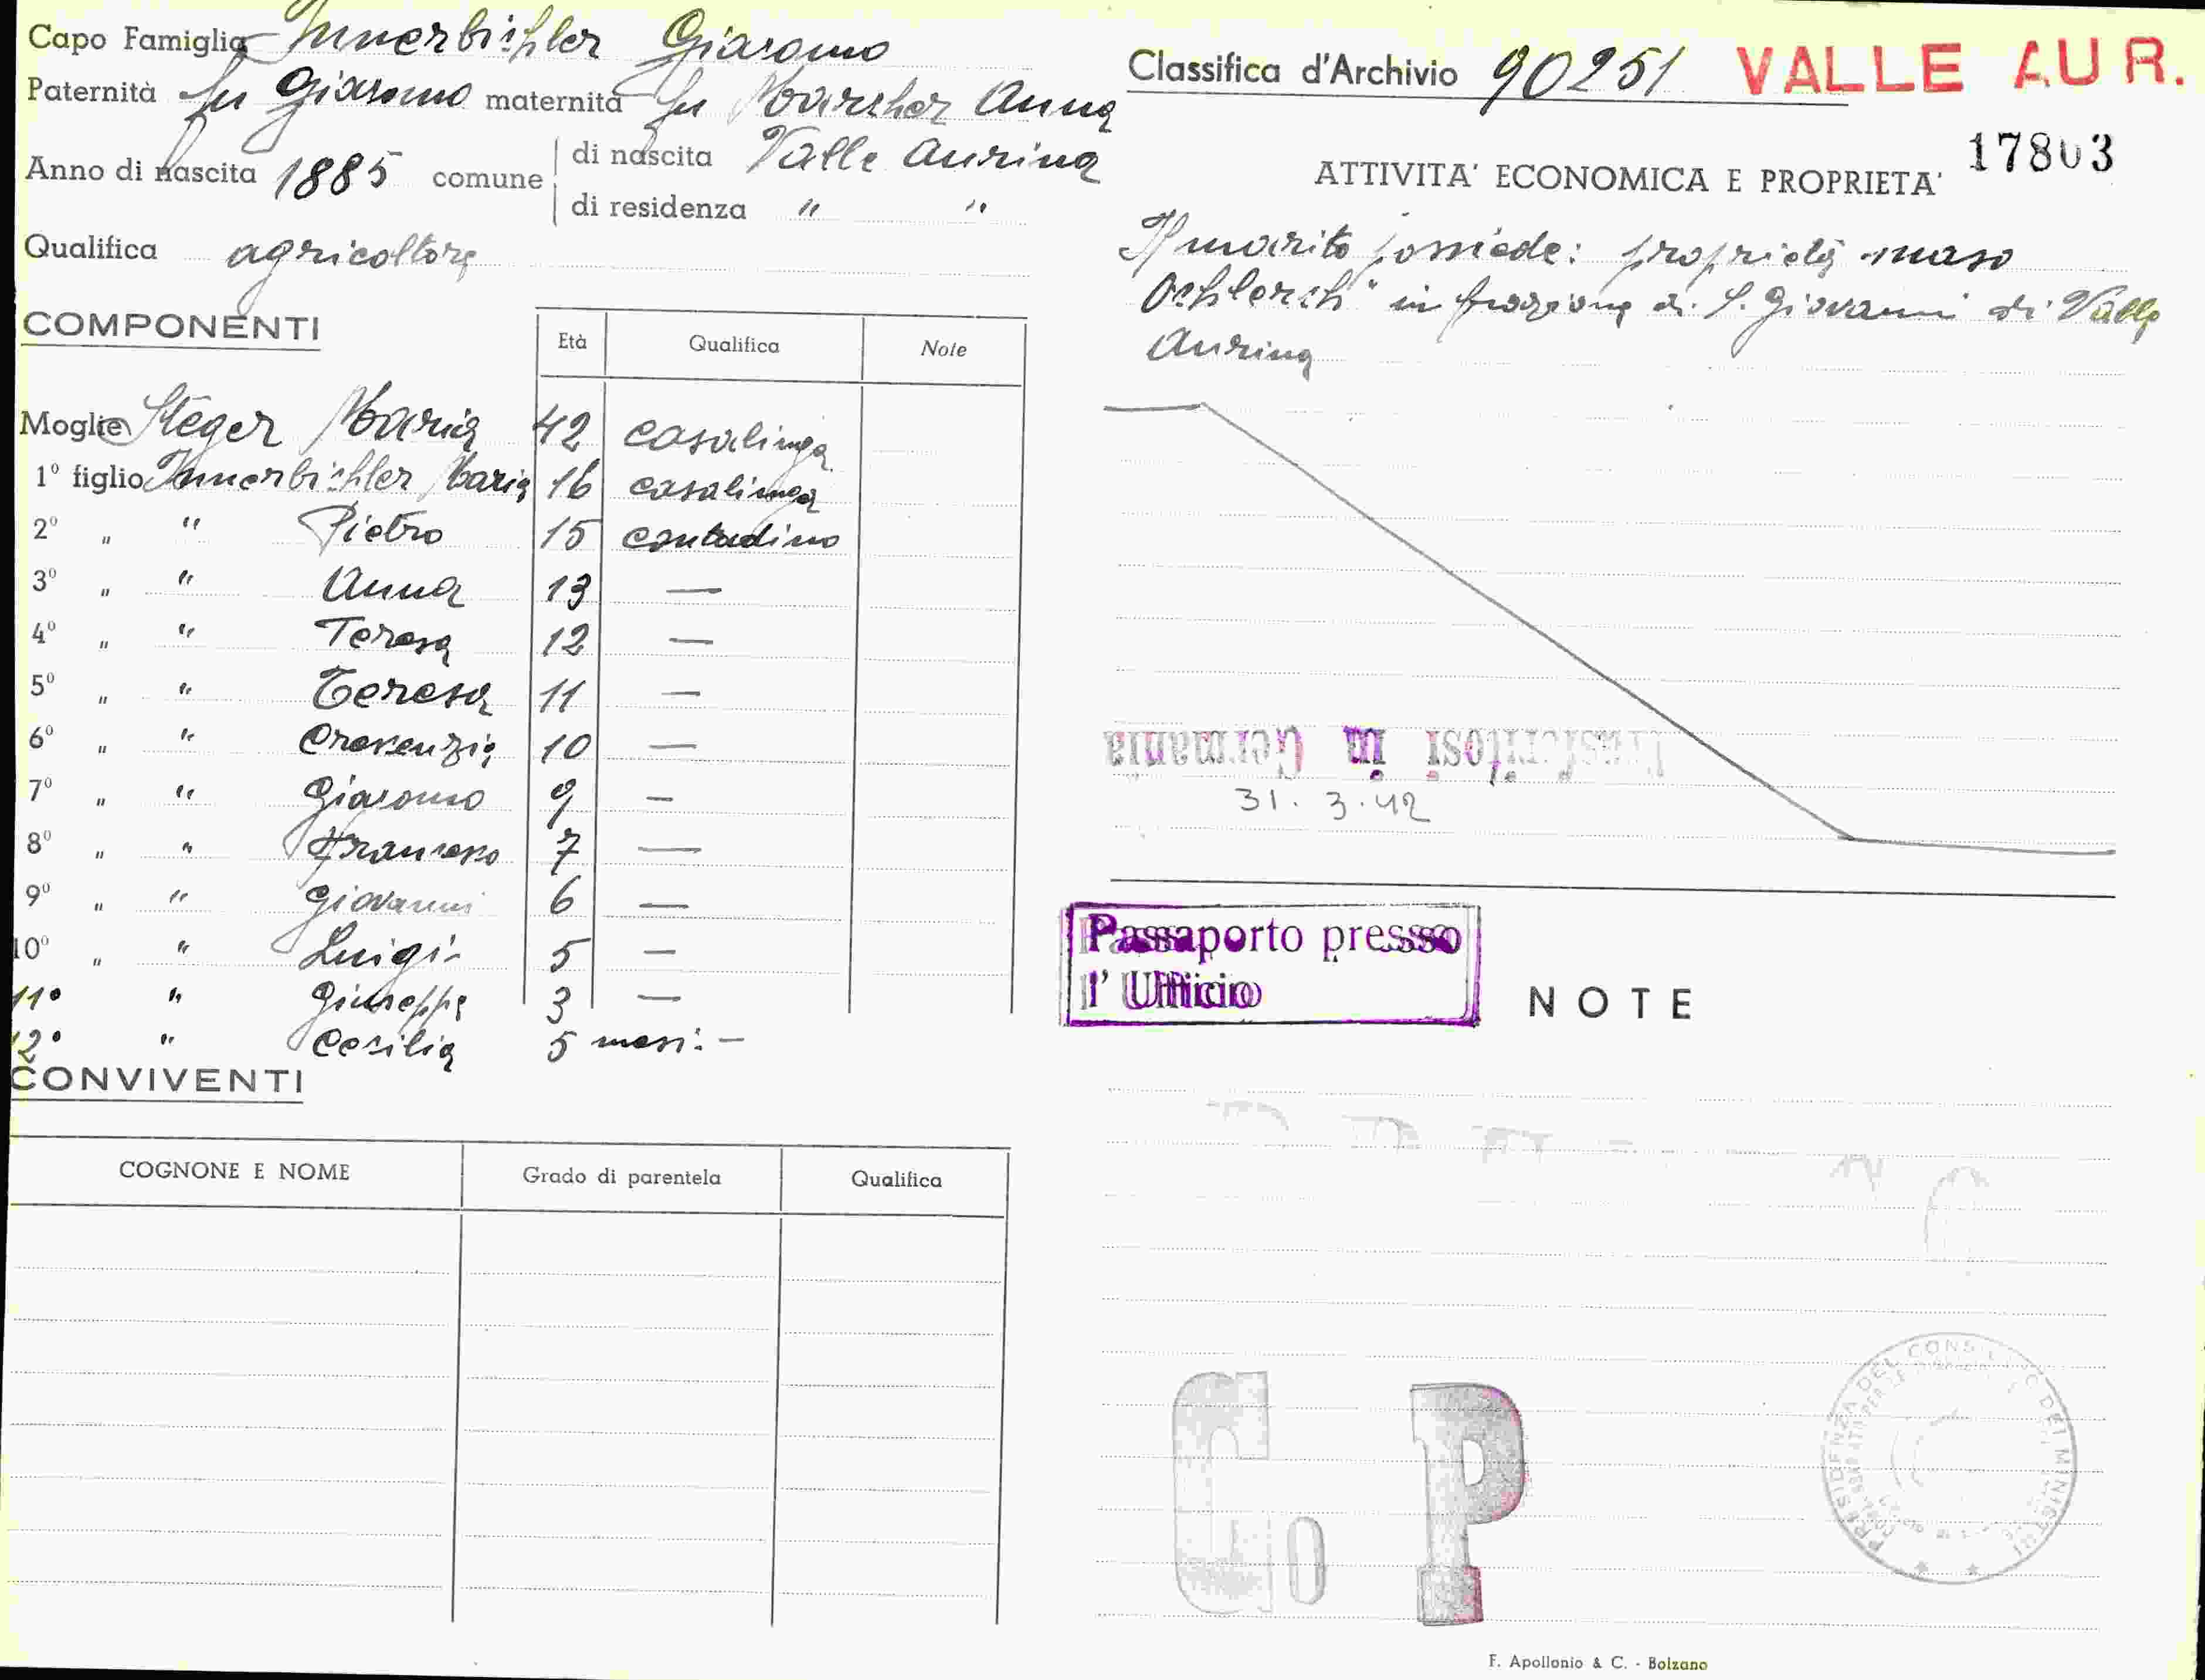 Capo Famiglia Innerbichler Giacomo
Paternità fu Giacomo maternità fu Marcher Anna
Anno di nascita 1885 comune di nascita Valle Aurina
di residenza " "
Qualifica agricoltore
COMPONENTI
Età Qualifica Note
Moglie Steger Maria 42 casalinga
1º figlio Innerbichler Maria 16 casalinga
2º " " Pietro 15 contadino
3º " " Anna 13 —
4º " " Teresa 12 —
5º " " Teresa 11 —
6º " " Crescenzia 10 —
7º " " Giacomo 9 —
8º " " Francesco 7 —
9º " " Giovanni 6 —
10º " " Luigi 5 —
11º " Giuseppe 3 —
12º " Cecilia 5 mesi: —
CONVIVENTI
COGNONE E NOME Grado di parentela Qualifica
Classifica d'Archivio 90251 VALLE AUR.
17803
ATTIVITA' ECONOMICA E PROPRIETA'
Il marito possiede: proprietà maso
in frazione di S. Giovanni di Valle
Aurina
Trasferitosi in Germania
31. 3. 42
Passaporto presso
l' Ufficio
NOTE
G P
PRESIDENZA DEL CONSIGLIO DEI MINISTRI
F. Apollonio & C. - Bolzano